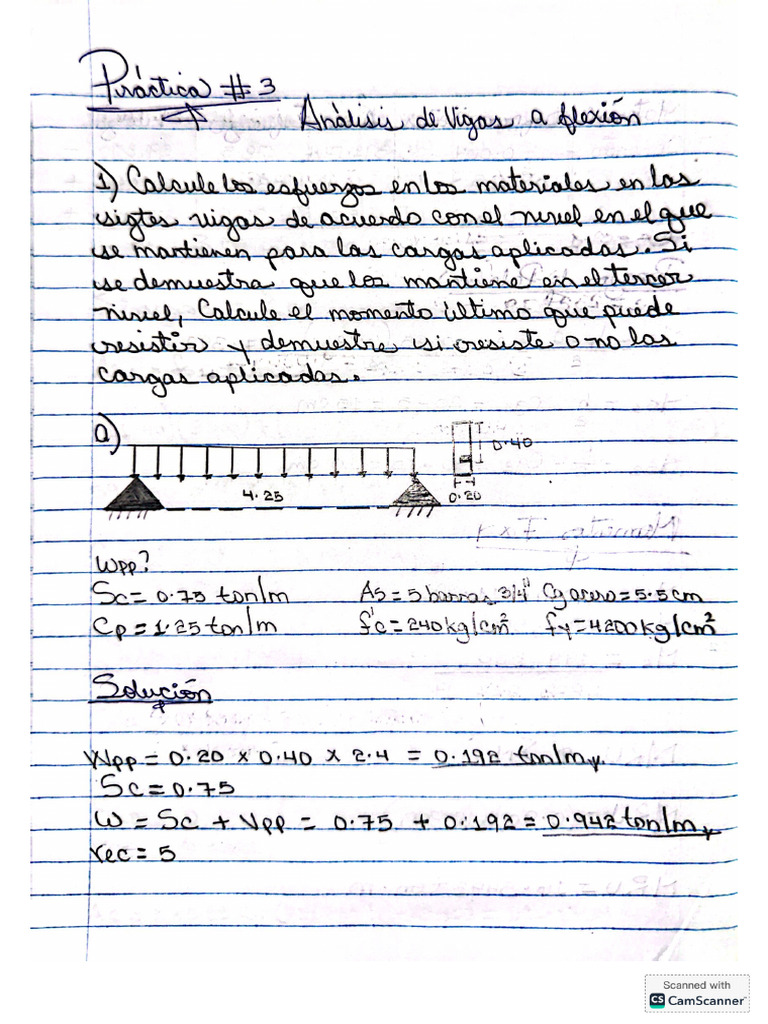 Práctica # 3
Análisis de Vigas a flexión
1) Calcule los esfuerzos en los materiales en las
sigtes vigas de acuerdo con el nivel en el que
se mantienen para las cargas aplicadas. Si
se demuestra que los mantiene en el tercer
nivel, Calcule el momento último que puede
resistir y demuestre si resiste o no las
cargas aplicadas.
a)
0.40
4.25
0.20
Wpp?
Sc = 0.75 ton/m As = 5 barras 3/4" Cg acero = 5.5 cm
Cp = 1.25 ton/m f'c = 240 kg/cm² fy = 4200 kg/cm²
Solución
Wpp = 0.20 x 0.40 x 2.4 = 0.192 ton/m
Sc = 0.75
W = Sc + Vpp = 0.75 + 0.192 = 0.942 ton/m
rec = 5
Scanned with
CS CamScanner